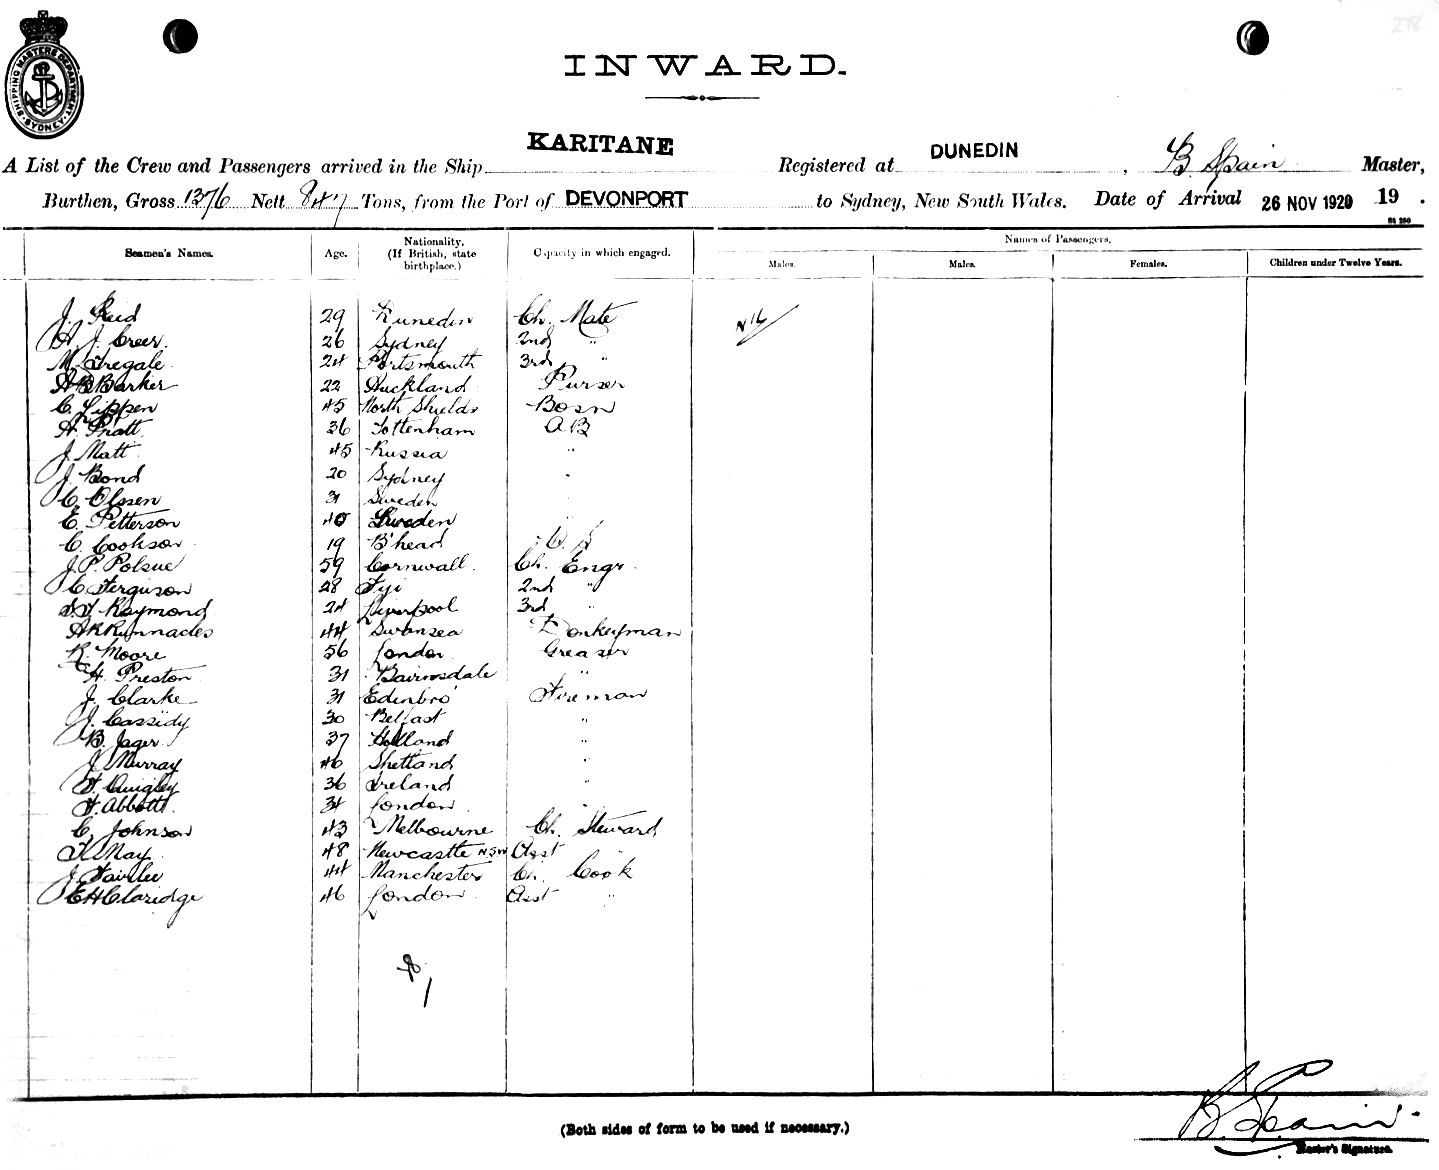 278
SHIPPING MASTERS DEPARTMENT
SYDNEY
INWARD.
A List of the Crew and Passengers arrived in the Ship KARITANE Registered at DUNEDIN, B Spain Master,
Burthen, Gross 1376 Nett 847 Tons, from the Port of DEVONPORT to Sydney, New South Wales. Date of Arrival 26 NOV 1920 19 .
Seamen's Names. Age. Nationality. (If British, state birthplace.) Capacity in which engaged. Names of Passengers.
Males. Males. Females. Children under Twelve Years.
J. Reid 29 Dunedin Ch. Mate Nil
H. J. Creer. 26 Sydney 2nd "
M. Tregale 24 Portsmouth 3rd "
H B Barker 22 Auckland Purser
C. Lippen 45 North Shields Bosn
H. Pratt 36 Tottenham AB
J. Matt 45 Russia "
J. Bond 20 Sydney "
C. Olssen 31 Sweden
E. Petterson 40 Sweden "
C. Cookson 19 B'head O.S
J. P. Polsue 59 Cornwall Ch. Engr.
C. Ferguson 28 Fiji 2nd "
S. F. Raymond 24 Liverpool 3rd "
A R Runnacles 44 Swansea Donkeyman
R. Moore 56 London Greaser
H. Preston 31 Bairnsdale "
J. Clarke 31 Edinbro' Fireman
J. Cassidy 30 Belfast "
B. Jager 37 Holland "
J. Murray 46 Shetland "
F. Quigley 36 Ireland "
F. Abbott 34 London "
C. Johnson 43 Melbourne Ch. Steward
F. May 48 Newcastle NSW Asst "
J. Fairlie 44 Manchester Ch. Cook
E H Claridge 46 London Asst "
(Both sides of form to be used if necessary.)
B. Spain
Master's Signature.